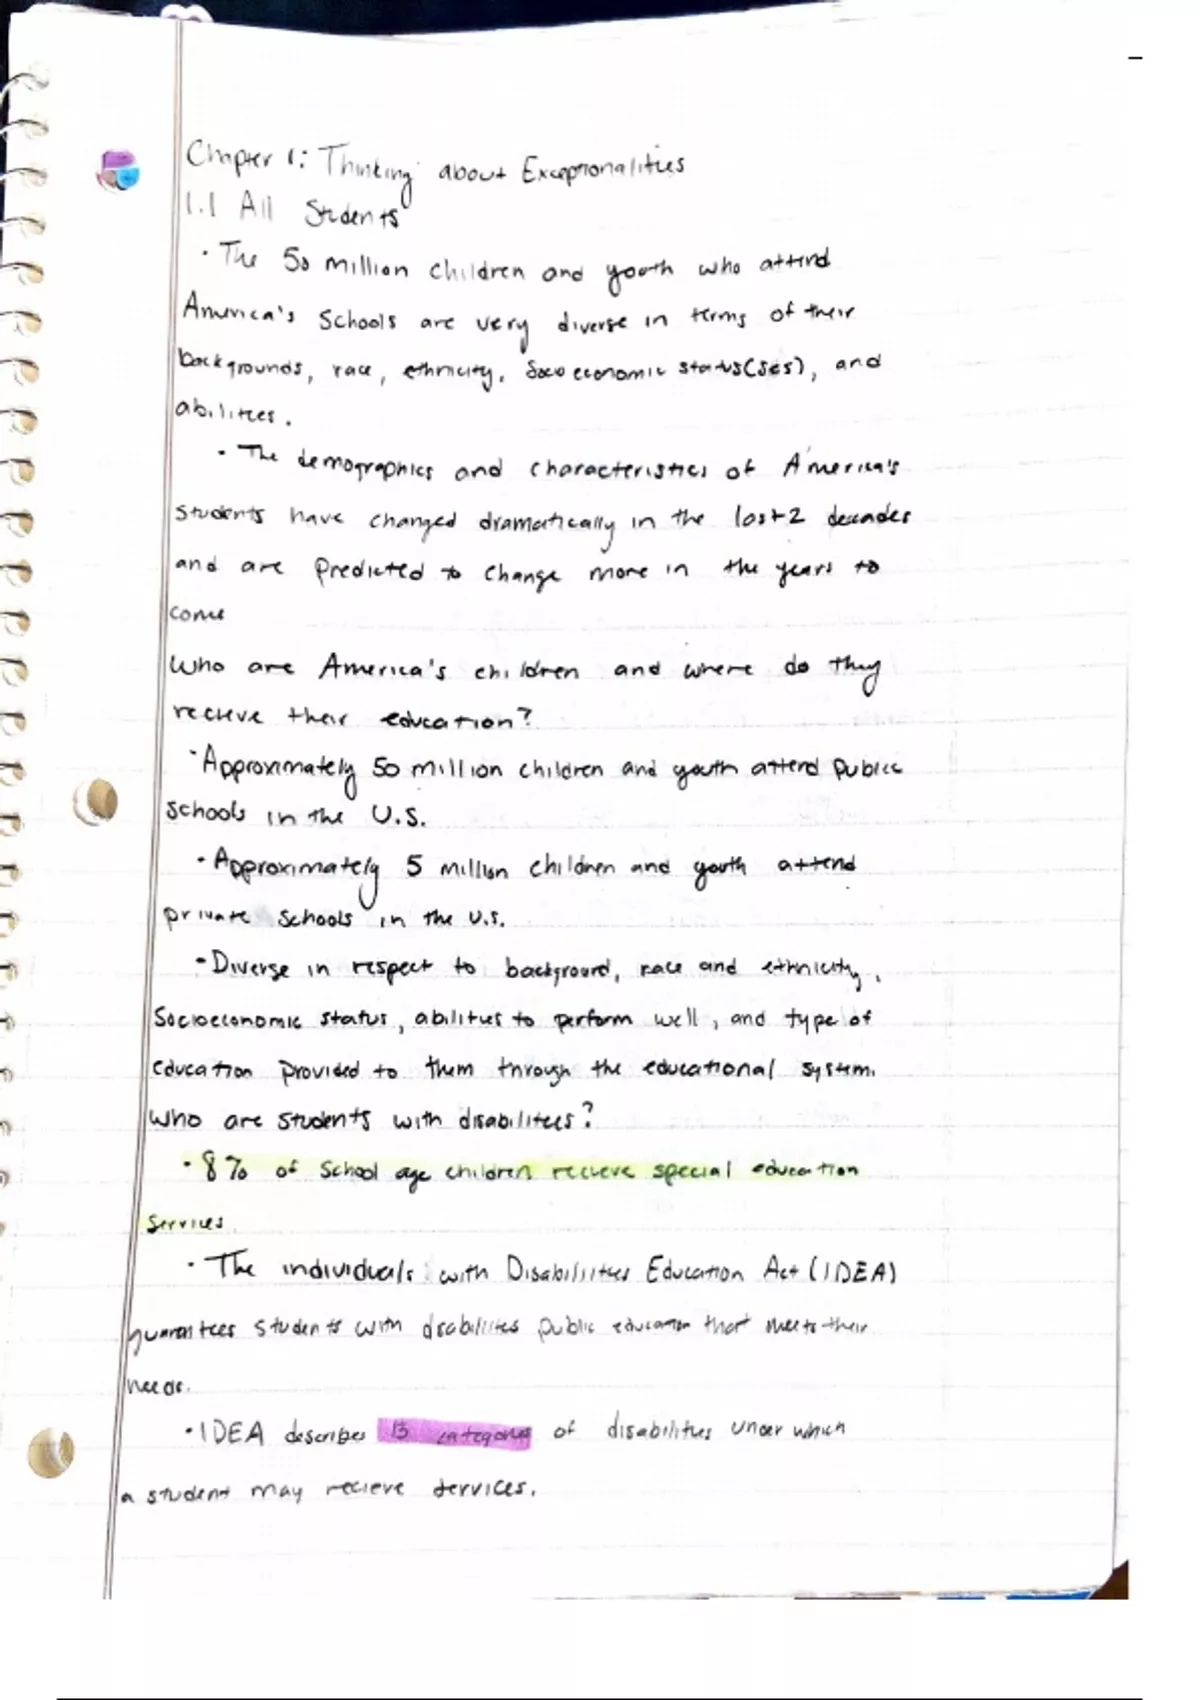 Chapter 1: Thinking about Exceptionalities
1.1 All Students
· The 50 million children and youth who attend
America's Schools are very diverse in terms of their
backgrounds, race, ethnicity, Socioeconomic status(ses), and
abilities.
· The demographics and characteristics of America's
students have changed dramatically in the last 2 decades
and are predicted to change more in the years to
come
Who are America's children and where do they
recieve their education?
· Approximately 50 million children and youth attend public
schools in the U.S.
· Approximately 5 million children and youth attend
private schools in the U.S.
· Diverse in respect to background, race and ethnicity,
Socioeconomic status, abilities to perform well, and type of
education provided to them through the educational system.
Who are students with disabilitees?
· 8% of school age children recieve special education
services.
· The individuals with Disabilities Education Act (IDEA)
guarantees students with disabilites public education that meets their
needs.
· IDEA describes 13 categories of disabilities under which
a student may recieve services.